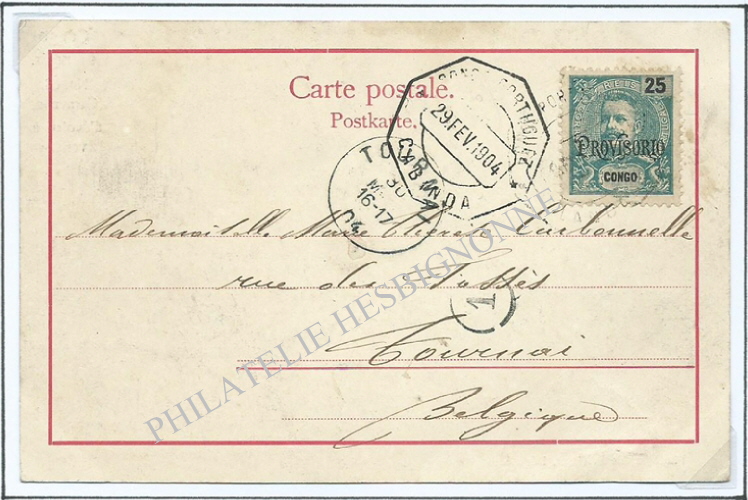 Carte postale.
Postkarte.
CONGO PORTUGUEZ
29.FEV.1904
CABINDA
TOURNAI
30
16-17
04
25
PROVISORIO
CONGO
Mademoiselle Marie Thérèse Carbonnelle
rue des Fossés
1
Tournai
Belgique
PHILATELIE HESBIGNONNE